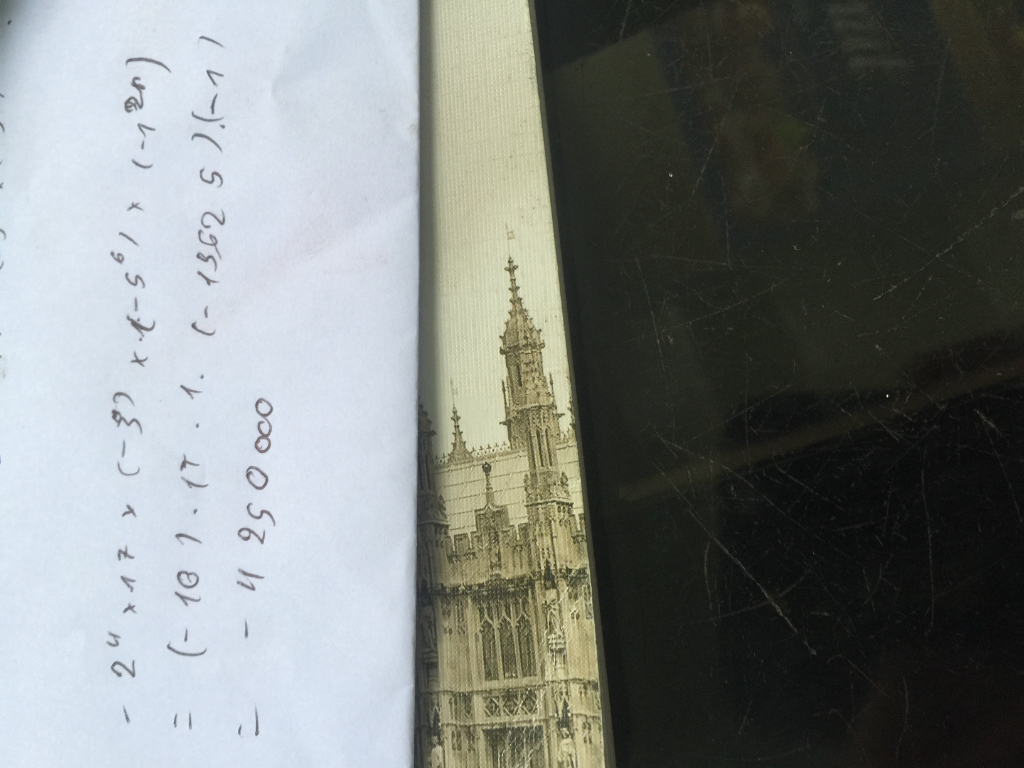 - 2⁴ × 17 × (-3)⁰ × (-5⁶) × (-1²ⁿ)
= (- 16 ) . 17 . 1 . (- 15625 ) . (-1)
= - 4 250 000